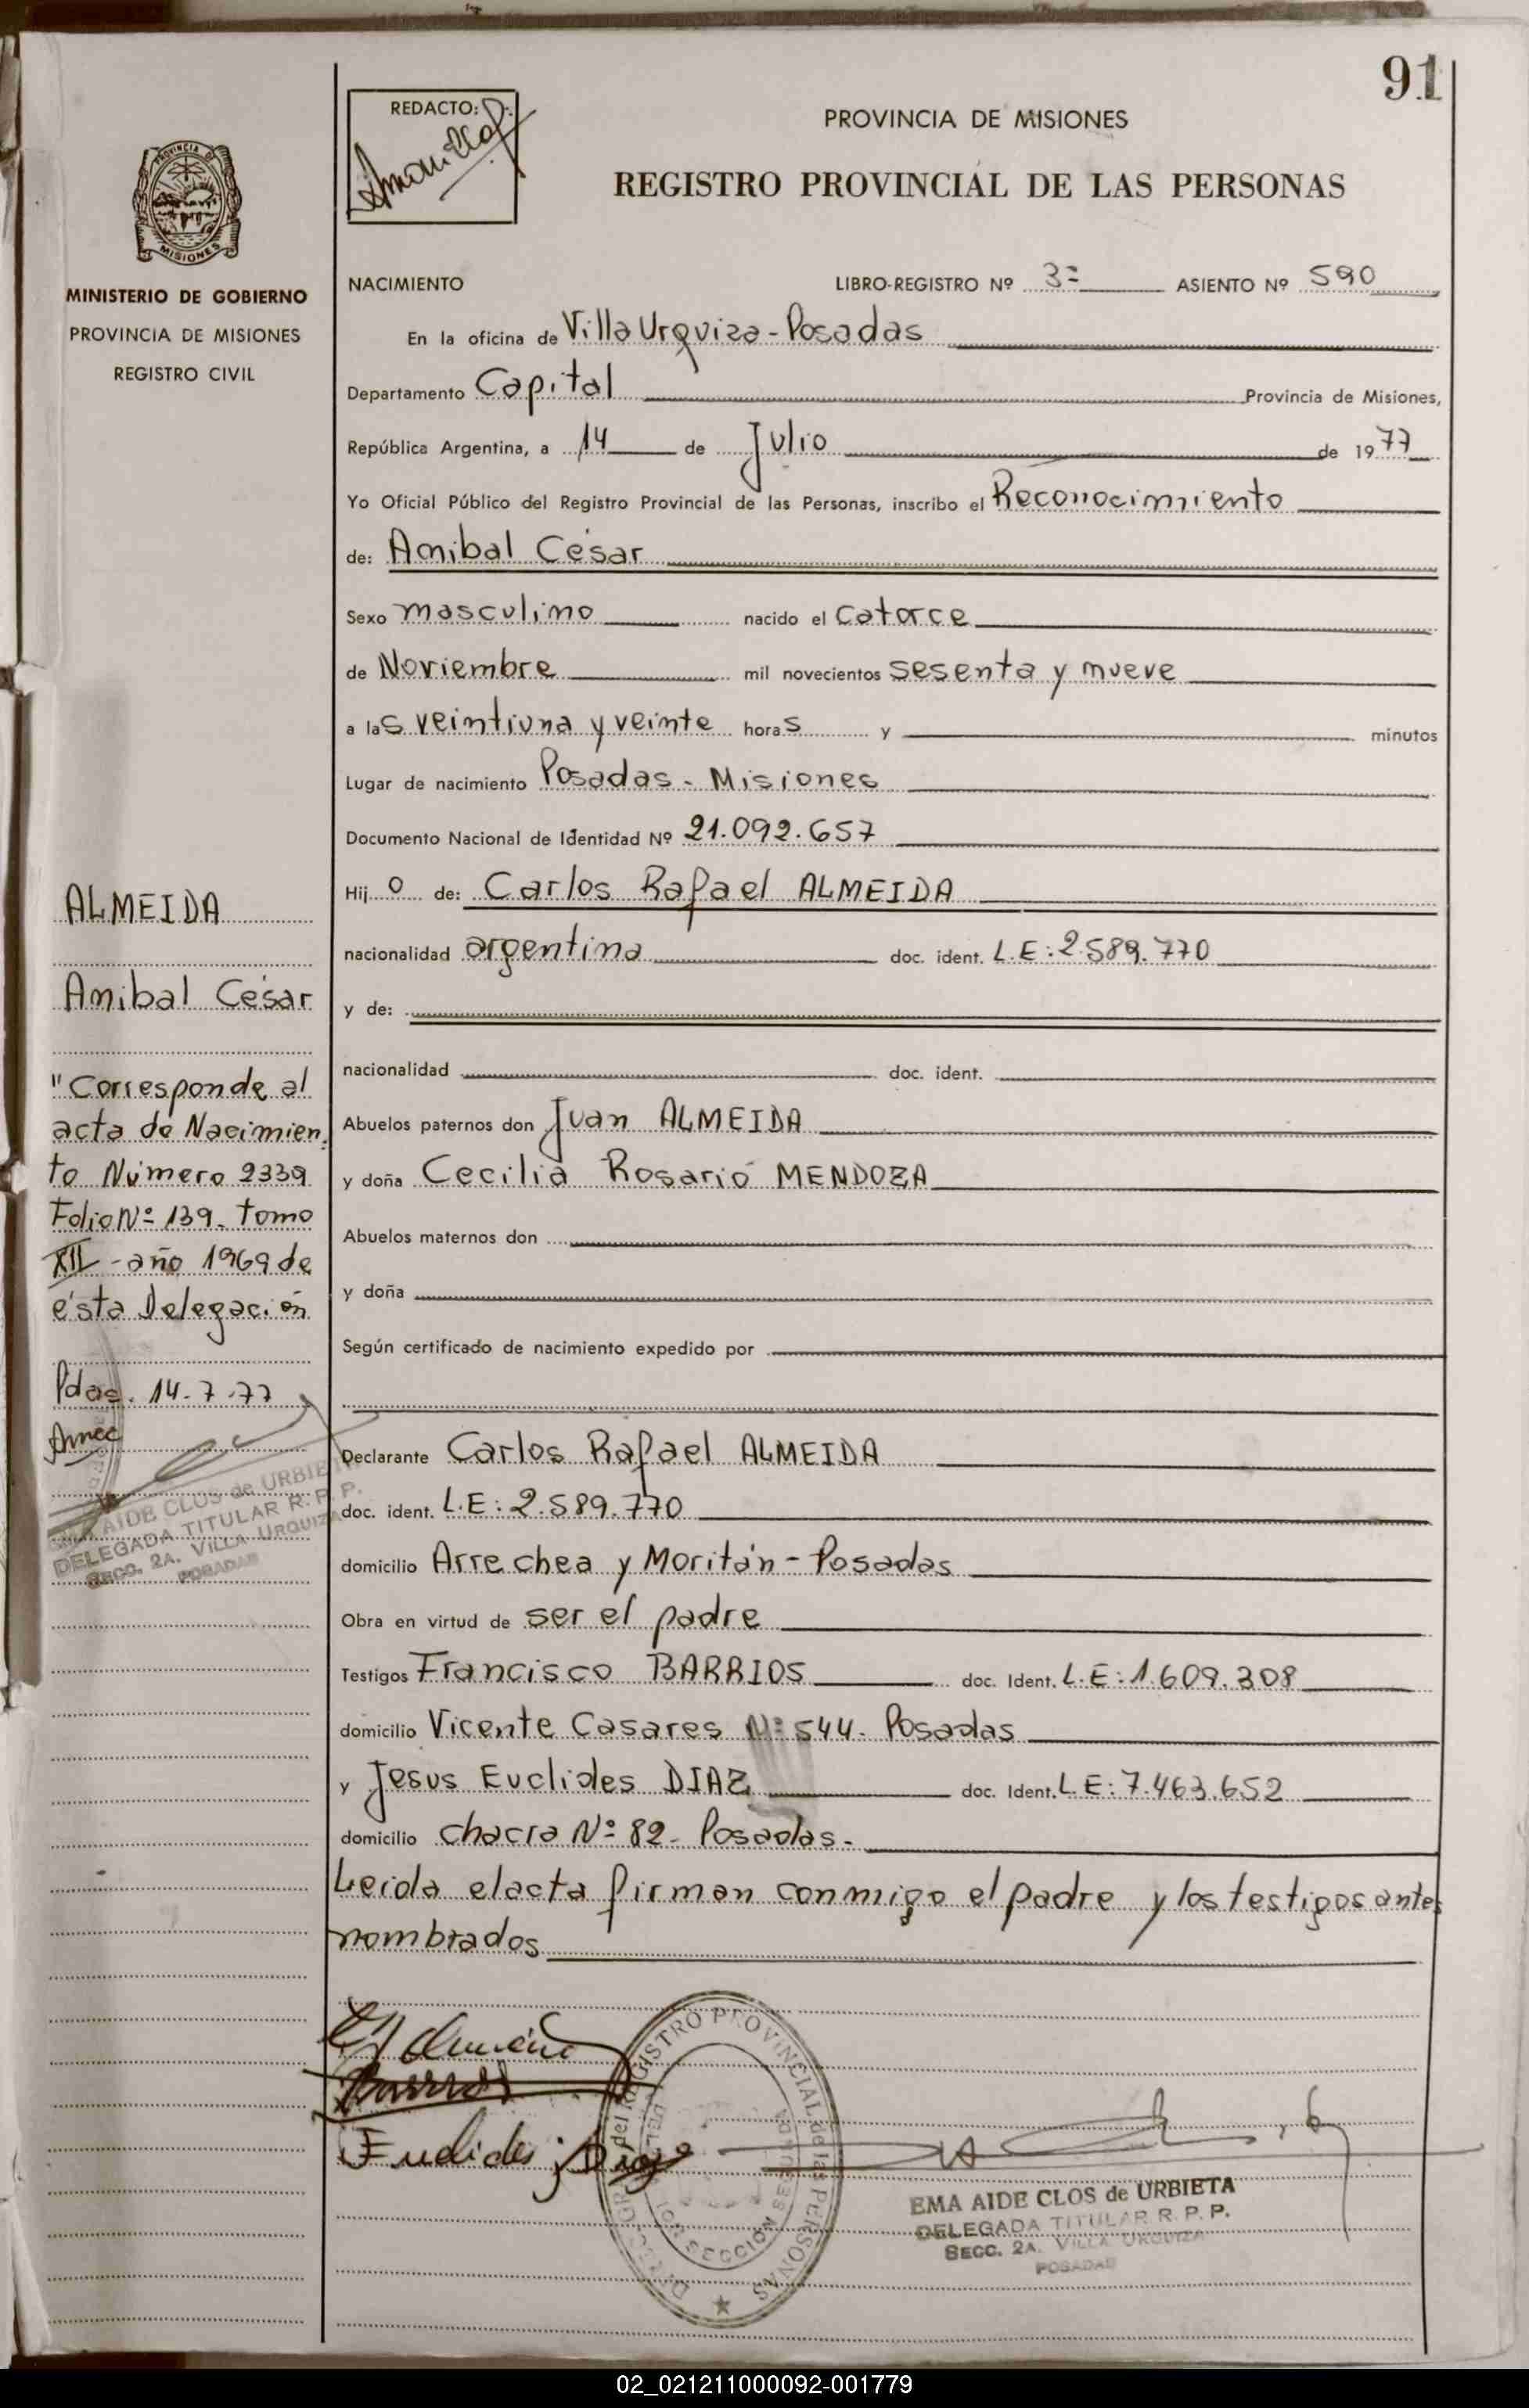 91
REDACTO:
PROVINCIA DE MISIONES
REGISTRO PROVINCIAL DE LAS PERSONAS
PROVINCIA DE
MISIONES
MINISTERIO DE GOBIERNO
PROVINCIA DE MISIONES
REGISTRO CIVIL
NACIMIENTO LIBRO-REGISTRO Nº 3º ASIENTO Nº 590
En la oficina de Villa Urquiza - Posadas
Departamento Capital Provincia de Misiones,
República Argentina, a 14 de Julio de 1977
Yo Oficial Público del Registro Provincial de las Personas, inscribo el Reconocimiento
de: Anibal César
Sexo masculino nacido el catorce
de Noviembre mil novecientos sesenta y nueve
a las veintiuna y veinte horas y minutos
Lugar de nacimiento Posadas - Misiones
Documento Nacional de Identidad Nº 21.092.657
Hijo de: Carlos Rafael ALMEIDA
nacionalidad argentina doc. ident. L.E: 2.589.770
y de:
nacionalidad doc. ident.
Abuelos paternos don Juan ALMEIDA
y doña Cecilia Rosario MENDOZA
Abuelos maternos don
y doña
Según certificado de nacimiento expedido por
Declarante Carlos Rafael ALMEIDA
doc. ident. L.E: 2.589.770
domicilio Arrechea y Moritán - Posadas
Obra en virtud de ser el padre
Testigos Francisco BARRIOS doc. Ident. L.E: 1.609.308
domicilio Vicente Casares Nº 544. Posadas
y Jesus Euclides DIAZ doc. Ident. L.E: 7.463.652
domicilio chacra Nº 82 - Posadas.-
Leida el acta firman conmigo el padre y los testigos antes
nombrados
ALMEIDA
Anibal César
"Corresponde al
acta de Nacimien
to Número 2339
Folio Nº 139. tomo
XII - año 1969 de
ésta Delegación
Pdas. 14.7.77
EMA AIDE CLOS de URBIETA
DELEGADA TITULAR R. P. P.
SECC. 2A. VILLA URQUIZA
POSADAS
Barrios
Euclides Diaz
REGISTRO PROVINCIAL de las PERSONAS
SECCIÓN SEGUNDA
EMA AIDE CLOS de URBIETA
DELEGADA TITULAR R. P. P.
SECC. 2A. VILLA URQUIZA
POSADAS
02_021211000092-001779